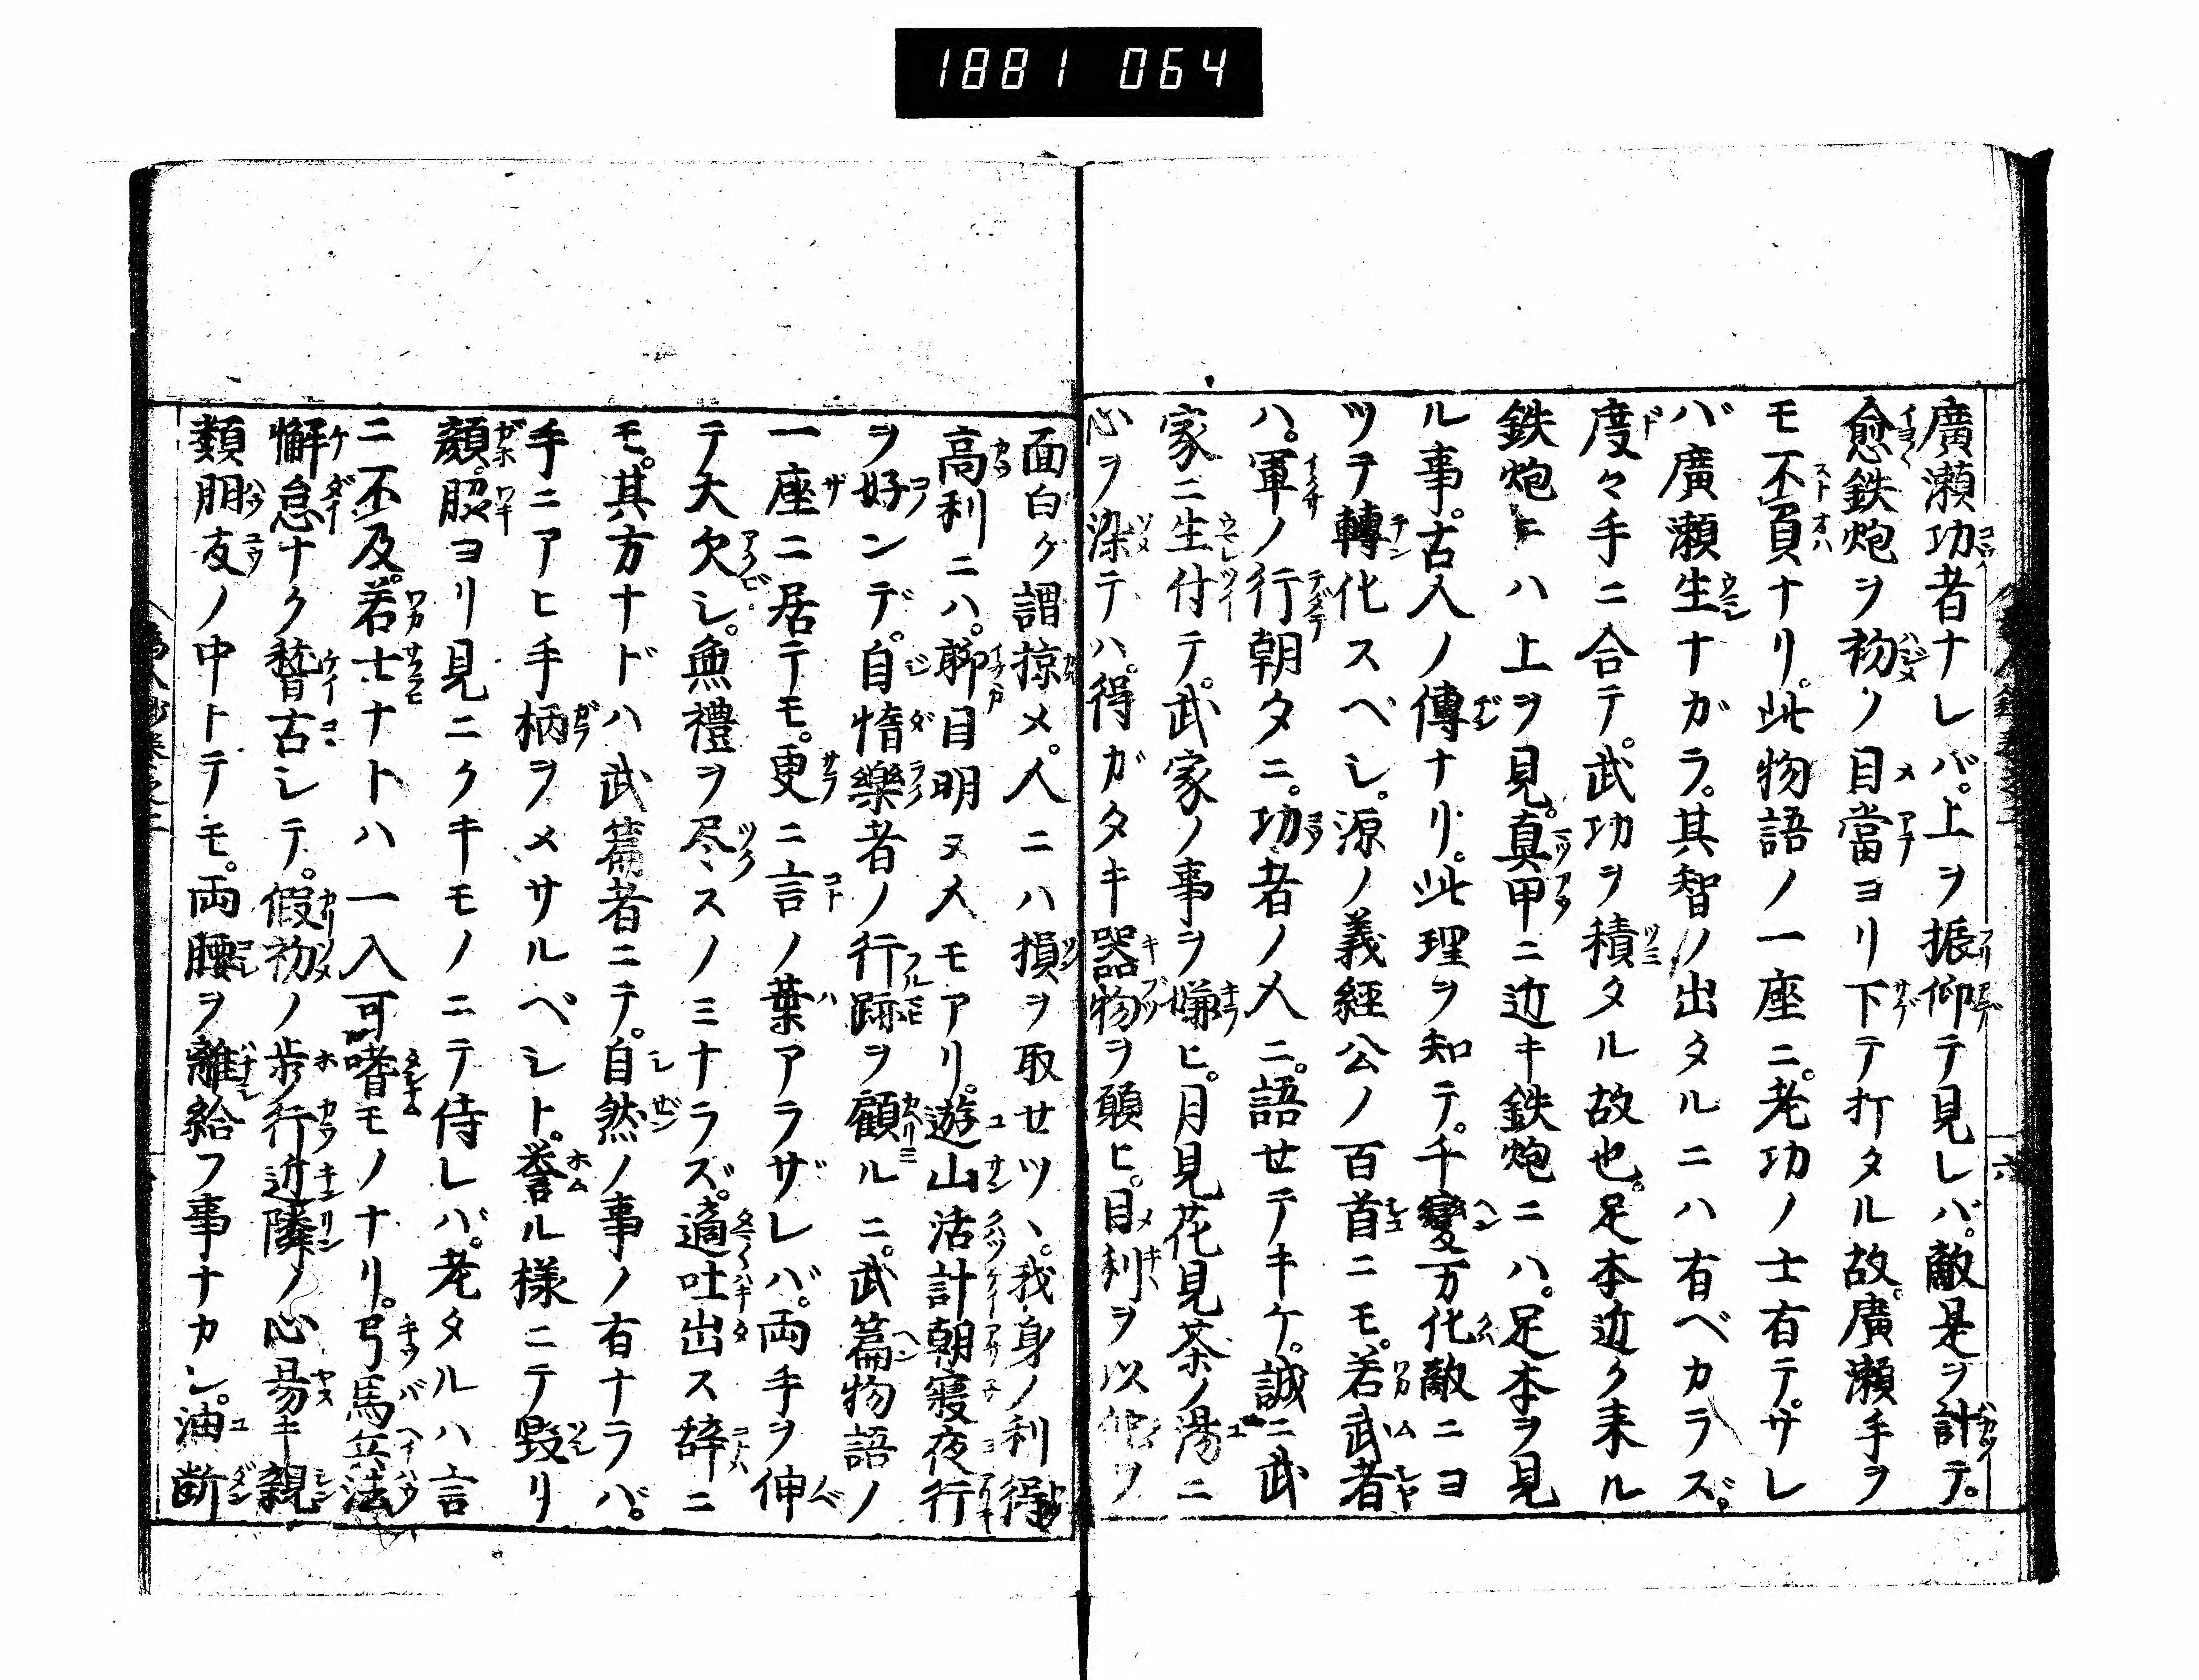 1881 064
廣瀬功者ナレバ。上ヲ振仰テ見レバ。敵是ヲ計テ。
愈鉄炮ヲ初ノ目當ヨリ下テ打タル故。廣瀬手ヲ
モ不負ナリ。此物語ノ一座ニ。老功ノ士有テ。サレ
バ廣瀬生ナガラ。其智ノ出タルニハ有ベカラズ。
度々手ニ合テ。武功ヲ積タル故也。足本近ク来ル
鉄炮ニハ上ヲ見。真甲ニ近キ鉄炮ニハ。足本ヲ見
ル事。古人ノ傳ナリ。此理ヲ知テ。千變万化敵ニヨ
ツテ轉化スベシ。源ノ義經公ノ百首ニモ。若武者
ハ。軍ノ行朝タニ。功者ノ人ニ。語セテキケ。誠ニ武
家ニ生付テ。武家ノ事ヲ嫌ヒ。月見花見茶ノ湯ニ
心ヲ染テハ。得ガタキ器物ヲ願ヒ。目利ヲ以他ヲ
面白ク謂掠メ。人ニハ損ヲ取セツヽ。我身ノ利得
高利ニハ。聊目明ヌ人モアリ。遊山活計朝寝夜行
ヲ好ンデ。自惰樂者ノ行跡ヲ顧ルニ。武篇物語ノ
一座ニ居テモ。更ニ言ノ葉アラザレバ。両手ヲ伸
テ大欠シ。無禮ヲ尽スノミナラズ。適吐出ス辞ニ
モ。其方ナドハ武篇者ニテ。自然ノ事ノ有ナラバ。
手ニアヒ手柄ヲメサルベシト。誉ル様ニテ毀リ
顔。脇ヨリ見ニクキモノニテ侍レバ。老タルハ言
ニ不及。若士ナトハ一入可嗜モノナリ。弓馬兵法
懈怠ナク稽古シテ。假初ノ歩行近隣ノ心易キ親
類朋友ノ中トテモ。両腰ヲ離給フ事ナカレ。油断
六